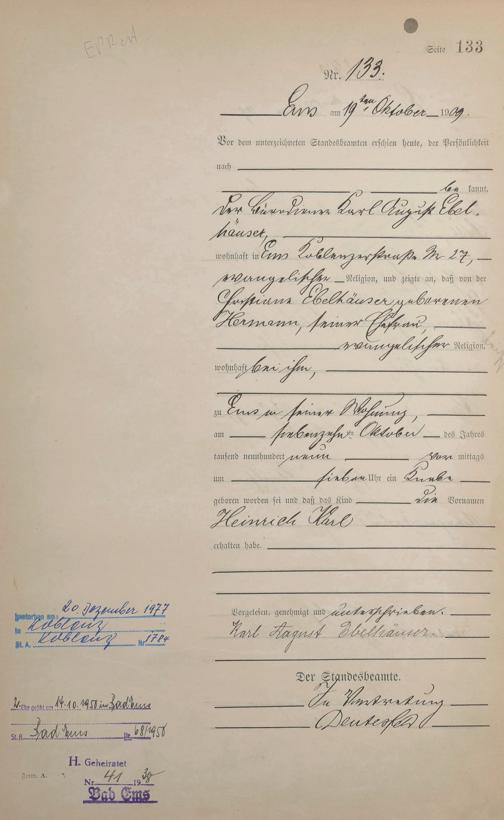 Seite 133
Nr. 133.
Ems am 19ten Oktober 1909.
Vor dem unterzeichneten Standesbeamten erschien heute, der Persönlichkeit
nach
be kannt,
der Bürodiener Karl August Ebel-
häuser,
wohnhaft in Ems Koblenzerstraße Nr 27,
evangelischer Religion, und zeigte an, daß von der
Christiane Ebelhäuser geborenen
Hermann, seiner Ehefrau,
evangelischer Religion,
wohnhaft bei ihm,
zu Ems in seiner Wohnung,
am siebenzehn Oktober des Jahres
tausend neunhundert neun vor mittags
um sieben Uhr ein Knabe
geboren worden sei und daß das Kind die Vornamen
Heinrich Karl
erhalten habe.
Vorgelesen, genehmigt und unterschrieben.
Karl August Ebelhäuser
Der Standesbeamte.
In Vertretung
Gestorben am 20. Dezember 1977
in Koblenz
St. A. Koblenz Nr. 1784
2. Ehe geschl. am 14.10.1950 in Bad Ems
St. A. Bad Ems Nr. 68/1950
H. Geheiratet
Nr. 41 1930
Bad Ems